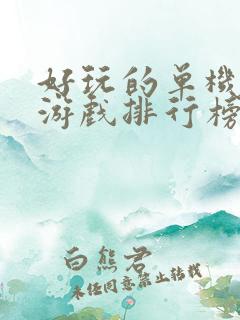 好玩的单機
游戲排行榜
白熊君
未经同意禁止转载